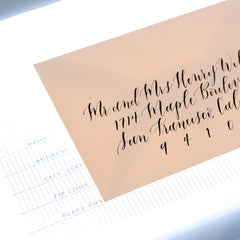 Mr and Mrs Henry Wil
1714 Maple Boulev
San Francisco, Cal
9 4 1 0
ADDRESS
CITY, STATE
ZIP CODE